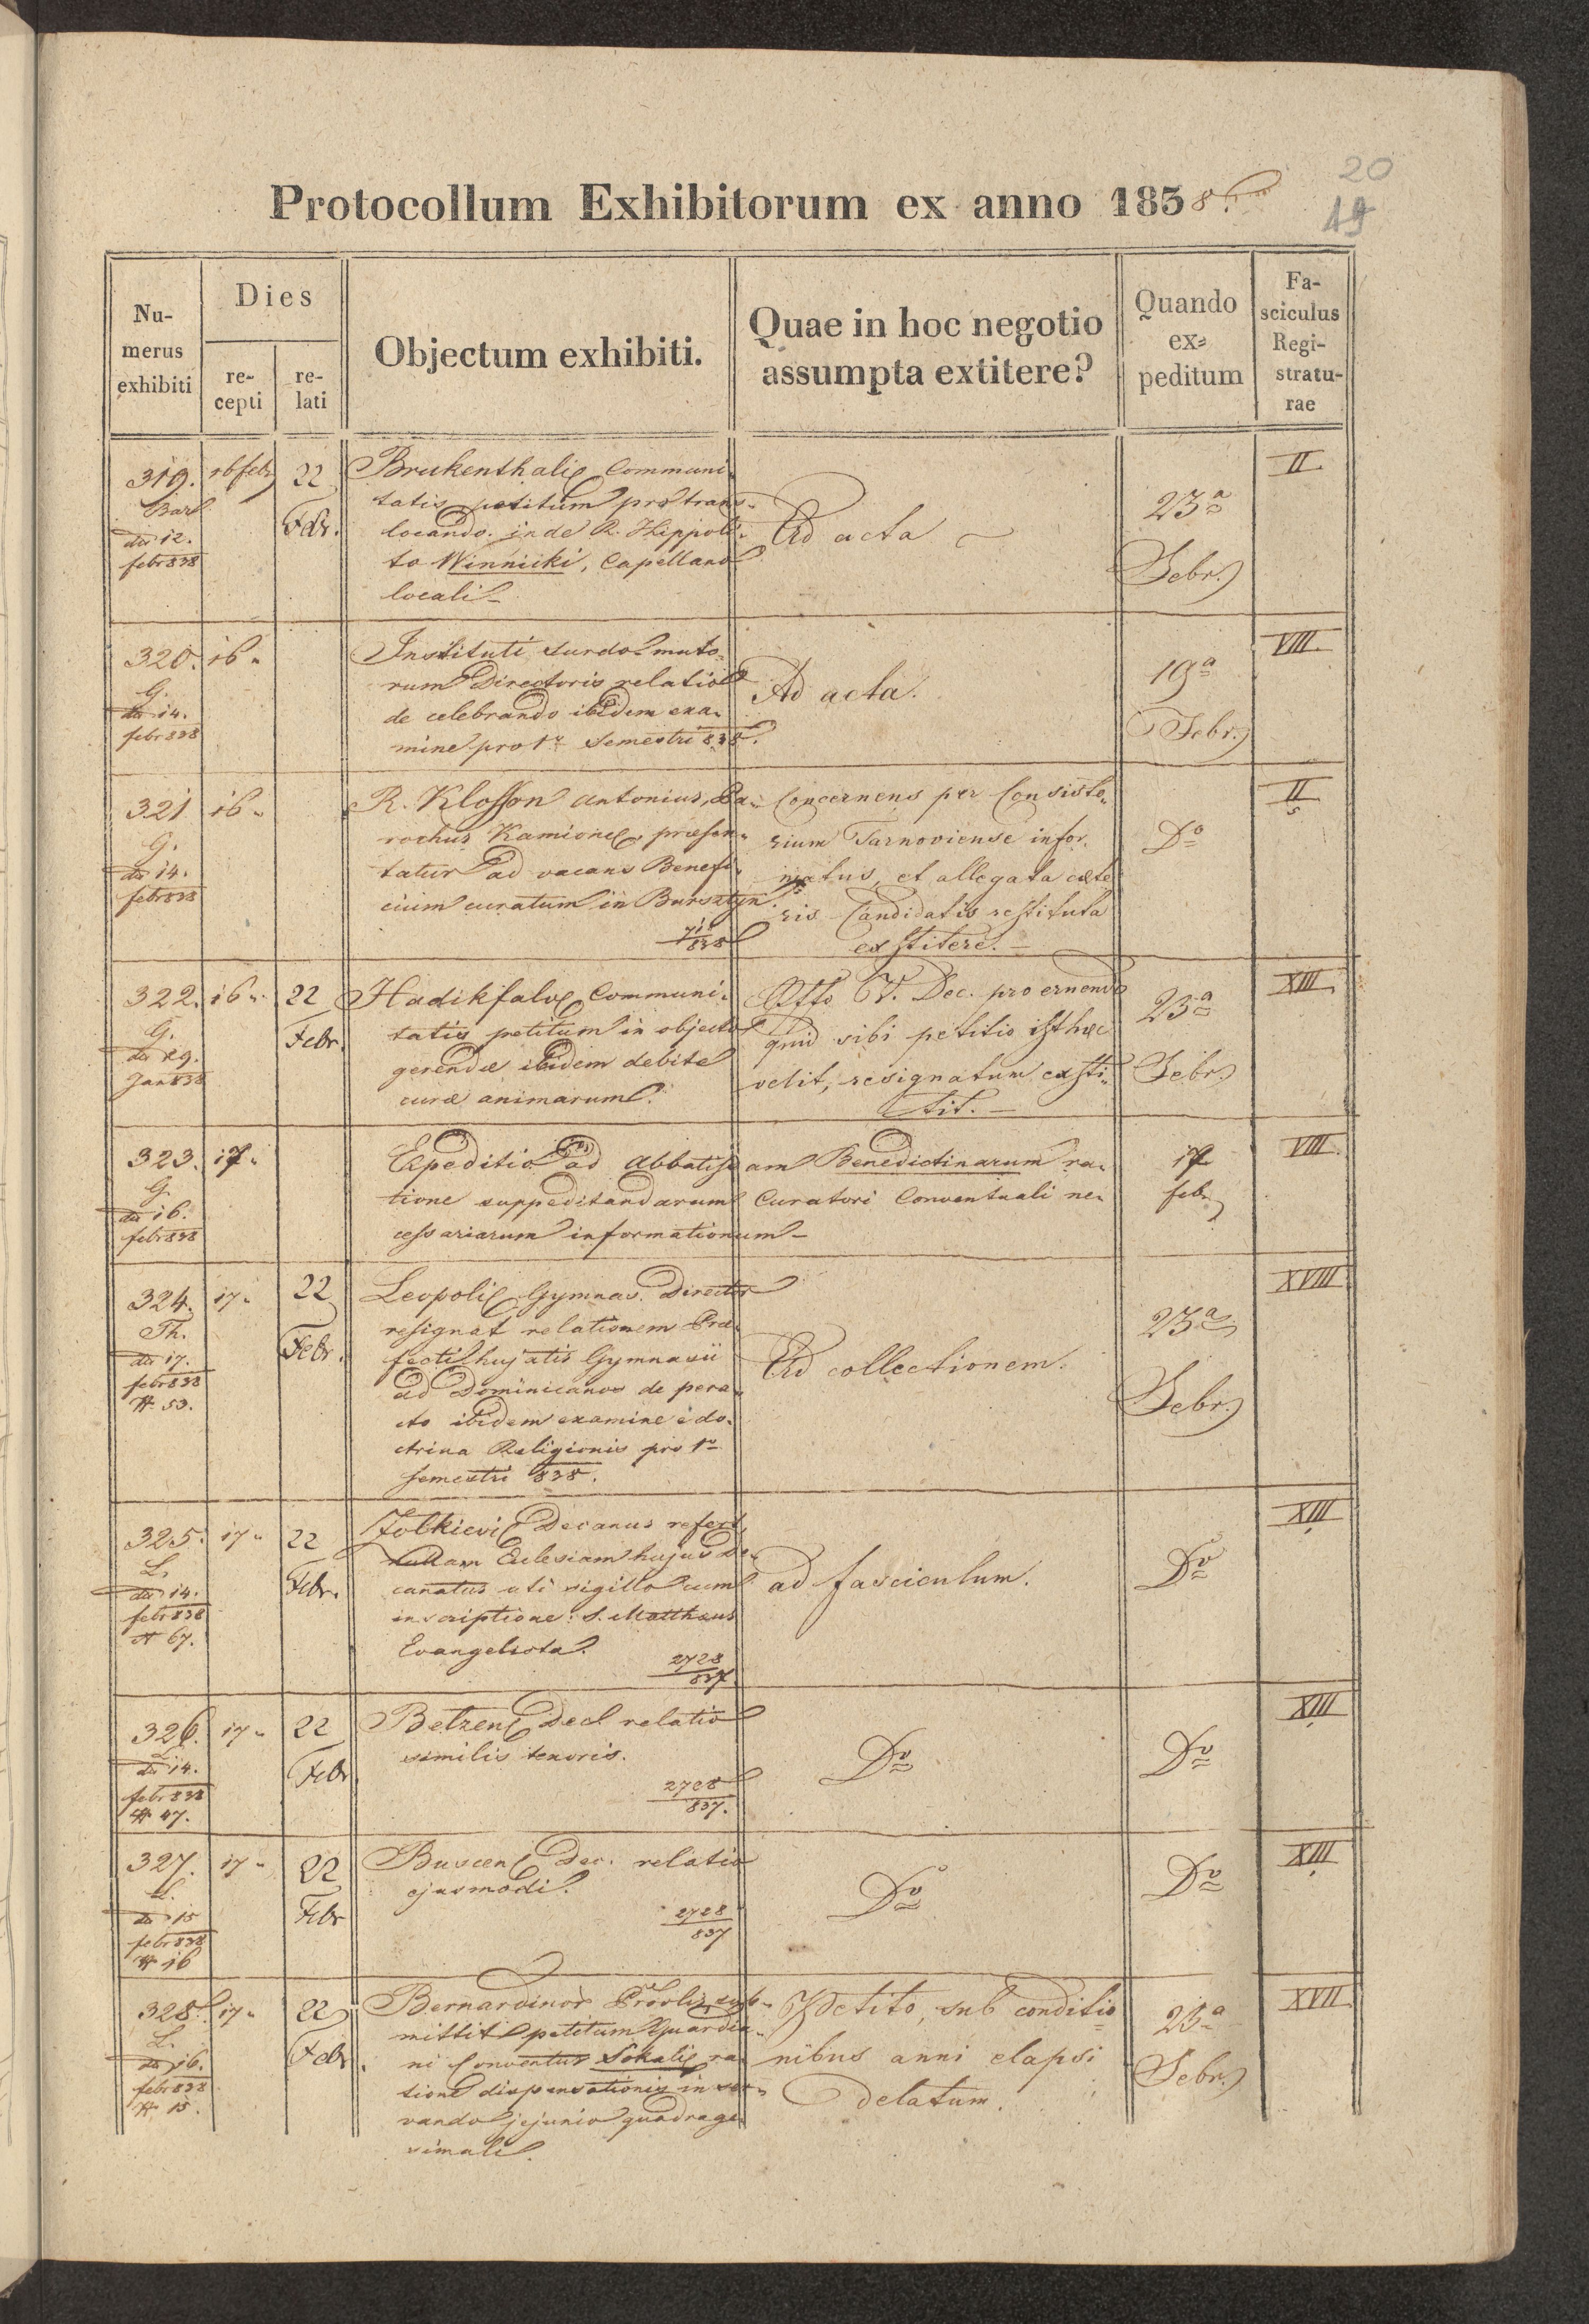 20
19
Protocollum Exhibitorum ex anno 1838.
Numerus exhibiti
Dies
recepti
relati
Objectum exhibiti.
Quae in hoc negotio assumpta extitere?
Quando expeditum
Fasciculus Registraturae
319. 16 febr 22 Febr.
dtt 12.
febr 838
Brukenthalie Communi-
tatis petitum pro trans-
locando inde R. Hippoli-
to Winnicki, Capellano
locali
Ad acta
23a
Febr.
II
320. 16 "
G.
dtt 14.
febr 838
Instituti surdo-muto-
rum Directoris relatio
de celebrando ibidem exa-
mine pro 1o Semestri 838.
Ad acta.
19a
Febr.
VIII.
321 16 "
G.
dtt 14.
febr 838
R. Klosson Antonius, Pa-
rochus Kamione, præsen-
tatur ad vacans Benefi-
cium curatum in Bursztyn
71/838
Concernens per Consisto-
rium Tarnoviense infor-
matus, et allegata cæte
ris Candidatis restituta
exstitere.
Do
II
5
322. 16 " 22 Febr.
G.
dtt 29.
Jan 838
Hadikfalve Communi-
tatis petitum in objecto
gerendæ ibidem debite
curæ animarum.
Offo V. Dec. pro eruendo
quid sibi petitio isthæc
velit, resignatum exsti-
tit.
23a
Febr.
XIII
323. 17 "
G.
dtt 16.
febr 838
Expeditio ad Abbatissam Benedictinarum ra-
tione suppeditandarum Curatori Conventuali ne-
cessariarum informationum
17
feb.
VIII.
324. 17 " 22 Febr.
Th.
dtt 17.
febr 838
N. 53.
Leopolie Gymnas. Director
resignat relationem Præ-
fecti hujatis Gymnasii
ad Dominicanos de pera-
cto ibidem examine e do-
ctrina Religionis pro 1o
semestri 838.
Ad collectionem.
23a
Febr.
XVIII
325. 17 " 22 Febr.
L.
dtt 14.
febr 838
N 67.
Zolkievie Decanus refert,
nullam Eclesiam hujus De-
canatus uti sigillo cum
inscriptione: S. Matthæus
Evangelista.
2728/837
ad fasciculum.
Do
XIII
326. 17 " 22 Febr
L.
dtt 14.
febr 838
N 47.
Belzens Dec. relatio
similis tenoris.
2728/837.
Do
Do
XIII
327. 17 " 22 Febr
L.
dtt 15
febr 838
N 16
Buscens Dec. relatio
ejusmodi.
2728/837
Do
Do
XIII
328. 17 " 22 Febr.
L.
dtt 16.
febr 838
N. 15.
Bernardinor Provlis sub-
mittit petitum Guardia-
ni Conventus Sokalie ra-
tione dispensationis in ser-
vando jejunio quadrage-
simali.
Petito, sub conditio-
nibus anni elapsi
delatum.
23a
Febr.
XVII